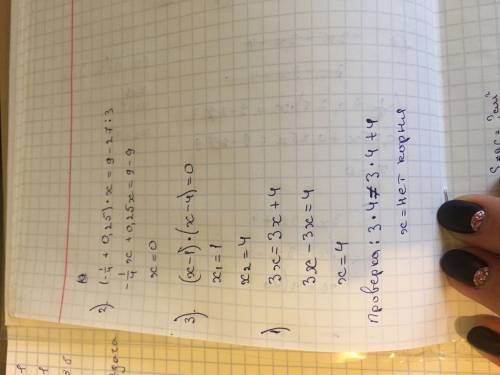 2) (-1/4 + 0,25) · x = 9 - 27 : 3
-1/4 x + 0,25x = 9 - 9
x = 0
3). (x-1) · (x-4) = 0
x₁ = 1
x₂ = 4
1) 3x = 3x + 4
3x - 3x = 4
x = 4
Проверка: 3 · 4 ≠ 3 · 4 + 4
x = нет корня